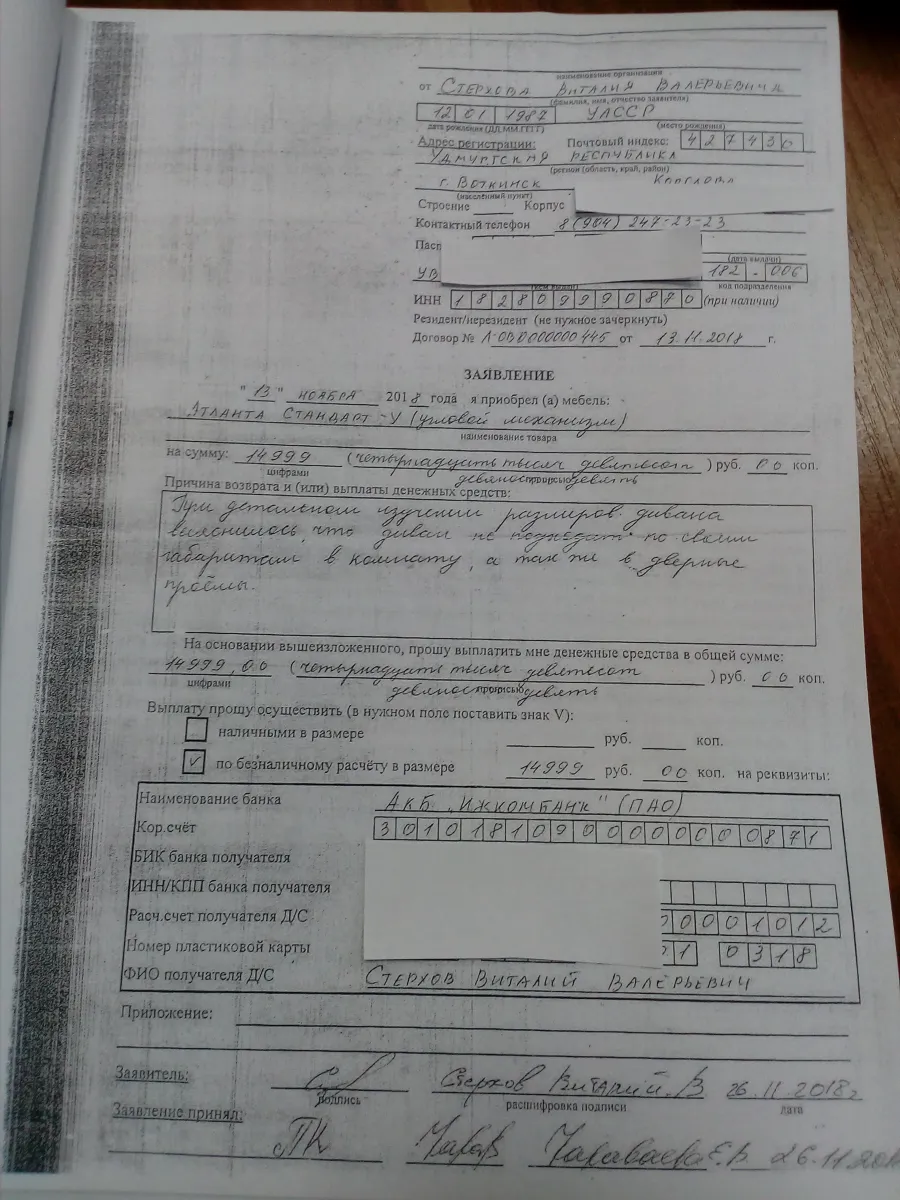 наименование организации
от Стерхова Виталия Валерьевича
(фамилия, имя, отчество заявителя)
12 01 1987 УАССР
дата рождения (ДД.ММ.ГГГГ) (место рождения)
Адрес регистрации: Почтовый индекс: 427430
Удмуртская Республика
(регион (область, край, район)
г. Воткинск
(населенный пункт)
Строение Корпус
Контактный телефон 8(904) 247-23-23
Пасп
(дата выдачи)
УВ 182 - 006
код подразделения
ИНН 182809990870 (при наличии)
Резидент/нерезидент (не нужное зачеркнуть)
Договор № от 13.11.2018 г.
ЗАЯВЛЕНИЕ
"13" ноября 2018 года я приобрел (а) мебель:
Атланта Стандарт-У (угловой механизм)
наименование товара
на сумму: 14999 (четырнадцать тысяч девятьсот ) руб. 00 коп.
цифрами девяносто прописью девять
Причина возврата и (или) выплаты денежных средств:
При детальном изучении размеров дивана
выяснилось, что диван не подходит по своим
габаритам в комнату, а так же в дверные
проёмы.
На основании вышеизложенного, прошу выплатить мне денежные средства в общей сумме:
14999,00 (четырнадцать тысяч девятьсот ) руб. 00 коп.
цифрами девяносто прописью девять
Выплату прошу осуществить (в нужном поле поставить знак V):
наличными в размере руб. коп.
V по безналичному расчёту в размере 14999 руб. 00 коп. на реквизиты:
Наименование банка АКБ „ИЖКОМБАНК" (ПАО)
Кор.счёт 30101810900000000871
БИК банка получателя
ИНН/КПП банка получателя
Расч.счет получателя Д/С 0001012
Номер пластиковой карты 1 0318
ФИО получателя Д/С Стерхов Виталий Валерьевич
Приложение:
Заявитель: Стерхов Виталий.В 26.11.2018г
подпись расшифровка подписи дата
Заявление принял: ПК Е.В 26.11.201